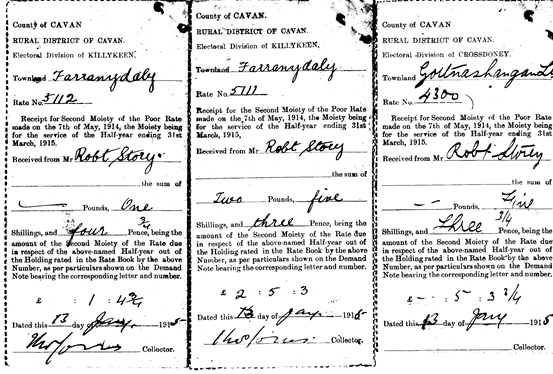 County of CAVAN.
RURAL DISTRICT OF CAVAN.
Electoral Division of KILLYKEEN.
Townland Farranydaly
Rate No. 5112
Receipt for Second Moiety of the Poor Rate
made on the 7th of May, 1914, the Moiety being
for the service of the Half-year ending 31st
March, 1915.
Received from Mr Robt Storey
the sum of
— Pounds, One
Shillings, and four 3/4 Pence, being the
amount of the Second Moiety of the Rate due
in respect of the above-named Half-year out of
the Holding rated in the Rate Book by the above
Number, as per particulars shown on the Demand
Note bearing the corresponding letter and number.
£ : 1 : 4 3/4
Dated this 13 day of Jany. 1915
Collector.
County of CAVAN.
RURAL DISTRICT OF CAVAN.
Electoral Division of KILLYKEEN.
Townland Farranydaly
Rate No. 5111
Receipt for the Second Moiety of the Poor Rate
made on the 7th of May, 1914, the Moiety being
for the service of the Half-year ending 31st
March, 1915.
Received from Mr Robt Storey
the sum of
Two Pounds, five
Shillings, and three Pence, being the
amount of the Second Moiety of the Rate due
in respect of the above-named Half-year out of
the Holding rated in the Rate Book by the above
Number, as per particulars shown on the Demand
Note bearing the corresponding letter and number.
£ 2 : 5 : 3
Dated this 13 day of Jany. 1915
Collector.
County of CAVAN
RURAL DISTRICT OF CAVAN.
Electoral Division of CROSSDONEY.
Townland
Rate No. 4300
Receipt for Second Moiety of the Poor Rate
made on the 7th of May, 1914, the Moiety being
for the service of the Half-year ending 31st
March, 1915.
Received from Mr Robt Storey
the sum of
— Pounds, Five
Shillings, and Three 3/4 Pence, being the
amount of the Second Moiety of the Rate due
in respect of the above-named Half-year out of
the Holding rated in the Rate Book by the above
Number, as per particulars shown on the Demand
Note bearing the corresponding letter and number.
£ - : 5 : 3 3/4
Dated this 13 day of Jany 1915
Collector.